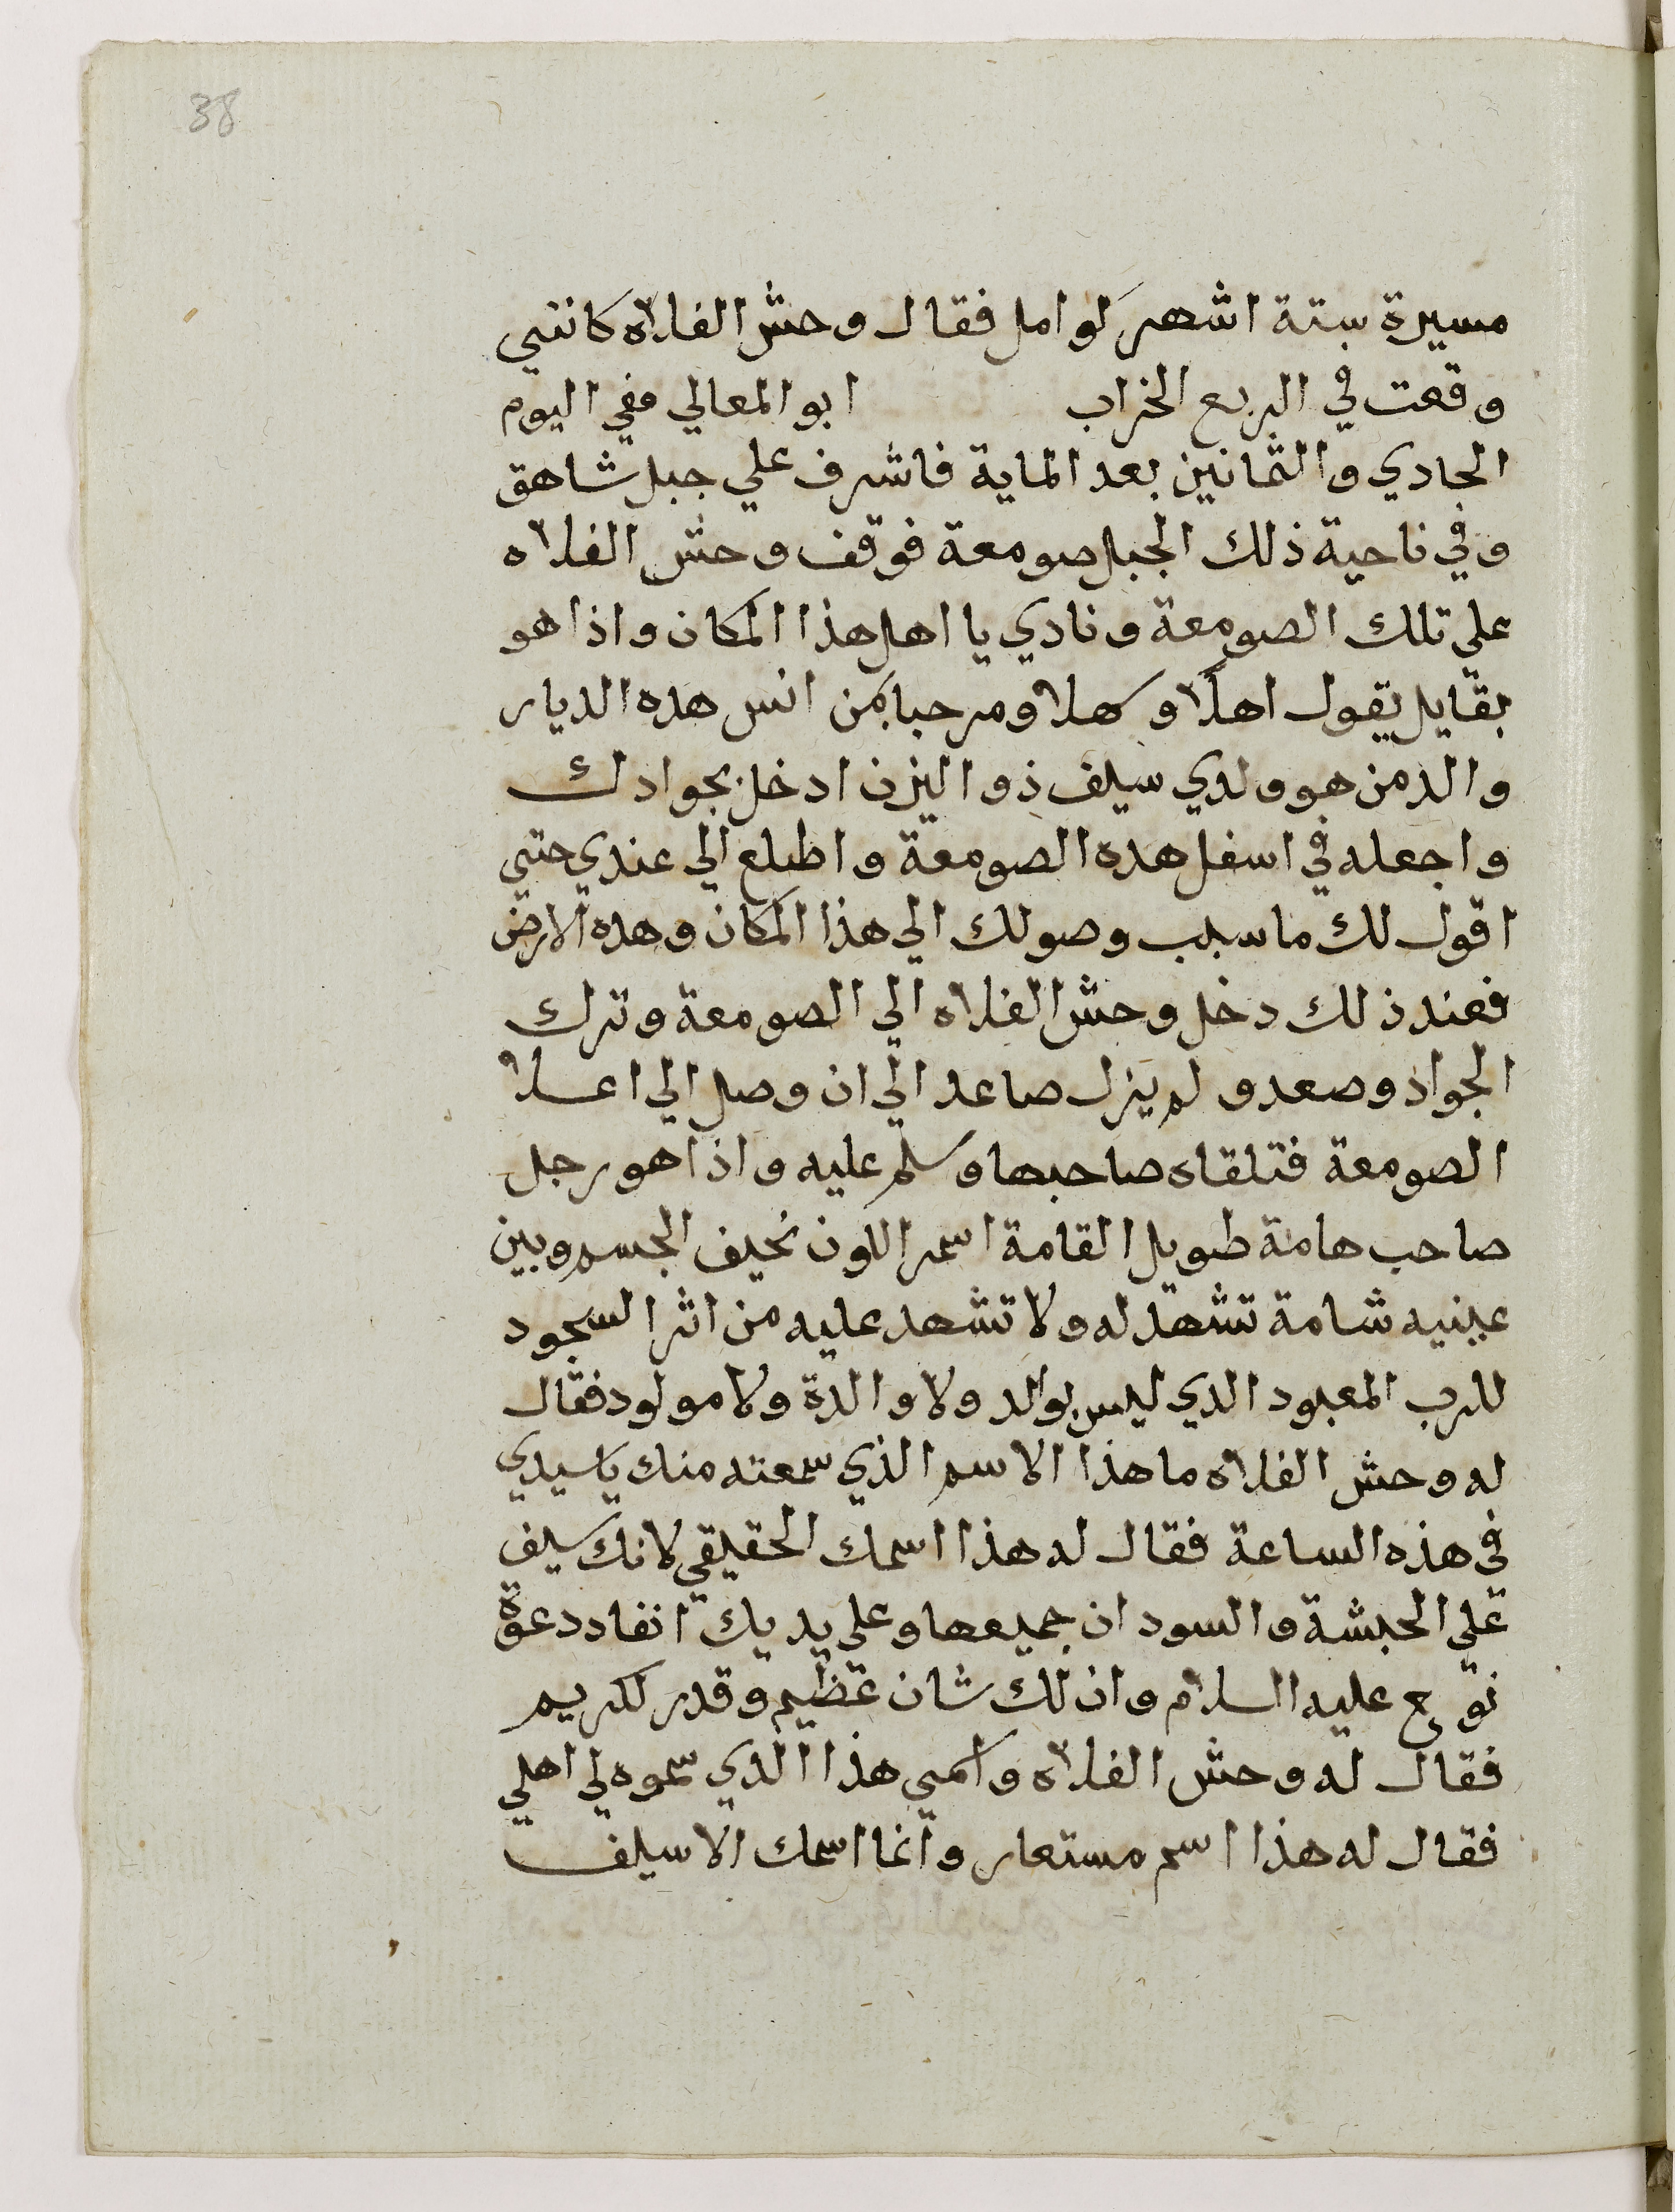 38
مسيرة ستة اشهر كوامل فقال وحش الفلاه كانني
وقعت في الربع الخراب ابو المعالي ففي اليوم
الحادي والثمانين بعد الماية فاشرف علي جبل شاهق
وفي ناحية ذلك الجبل صومعة فوقف وحش الفلاه
علي تلك الصومعة ونادي يا اهل هذا المكان واذا هو
بقايل يقول اهلا وسهلا ومرحبا بمن انس هده الديار
والدمن هو ولدي سيف ذو اليزن ادخل بجوادك
واجعله في اسفل هده الصومعة واطلع الي عندي حتي
اقول لك ما سبب وصولك الي هذا المكان وهده الارض
فعند ذلك دخل وحش الفلاه الي الصومعة وترك
الجواد وصعد ولم يزل صاعد الي ان وصل الي اعلا
الصومعة فتلقاه صاحبها وسلم عليه واذا هو رجل
صاحب هامة طويل القامة اسمر اللون نحيف الجسم وبين
عينيه شامة تشهد له ولا تشهد عليه من اثر السجود
للرب المعبود الدي ليس بوالد ولا والدة ولا مولود فقال
له وحش الفلاه ما هذا الاسم الذي سمعته منك يا سيدي
في هذه الساعة فقال له هذا اسمك الحقيقي لانك سيف
علي الحبشة والسودان جميعها وعلي يديك انفاد دعوة
نوح عليه السلام وان لك شان عظيم وقدر كريم
فقال له وحش الفلاه واسمي هذا الدي سموه لي اهلي
فقال له هذا اسم مستعار وانما اسمك الا سيف